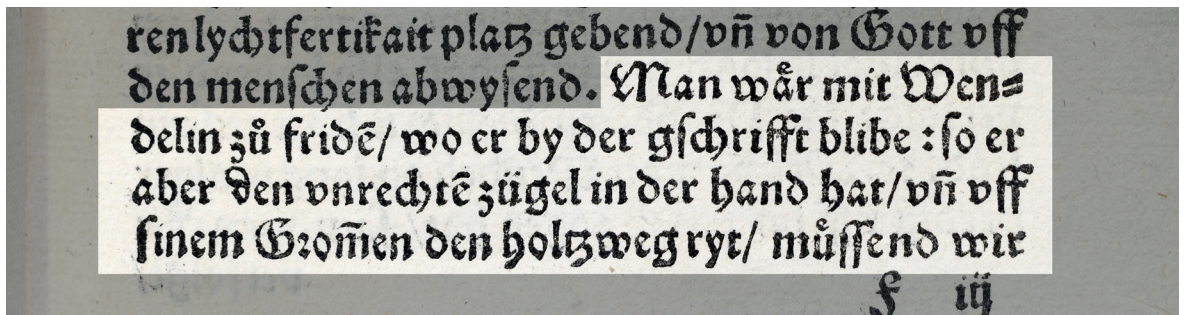 ren lychtfertikait platz gebend/vn̄ von Gott vff
den menschen abwysend. Man waͤr mit Wen⸗
delin zuͦ fridē/ wo er by der gschrifft blibe : so er
aber den vnrechtē zügel in der hand hat/vn̄ vff
sinem Grom̄en den holtzweg ryt/ muͤssend wir
F iij